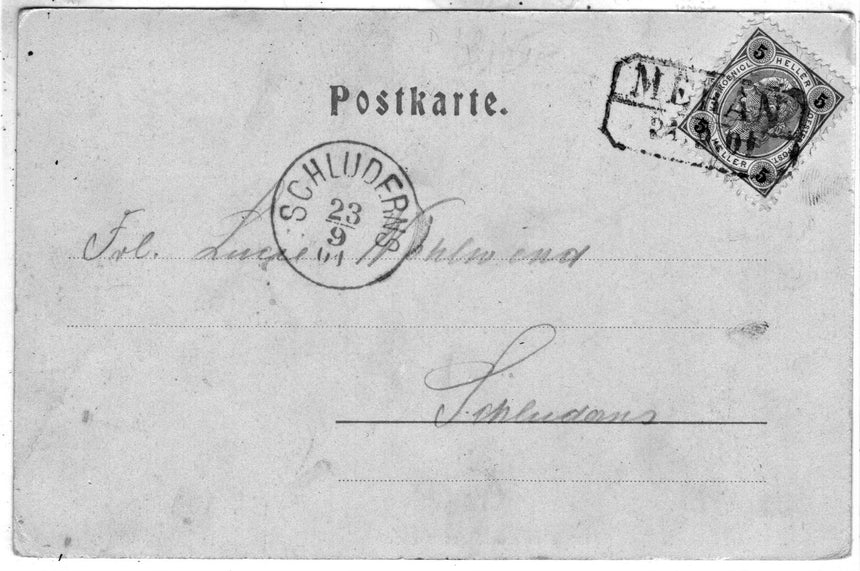 Postkarte.
MERAN
5 HELLER 5
5 HELLER 5
SCHLUDERNS
23
9
01
Frl. Lucie Wohlwend
Schluderns